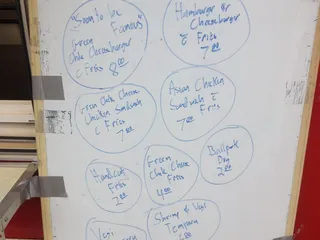 "Soon to be
Famous"
Green
Chile Cheeseburger
c Fries
8.00
Hamburger or
Cheeseburger
c Fries
7.00
Green Chile Cheese
Chicken Sandwich
c Fries
7.00
Asian Chicken
Sandwich c
Fries
7.00
Handcut
Fries
2.00
Green
Chile Cheese
Fries
4.00
Ballpark
Dog
2.00
Vegi
Shrimp & Vegi
Tempura